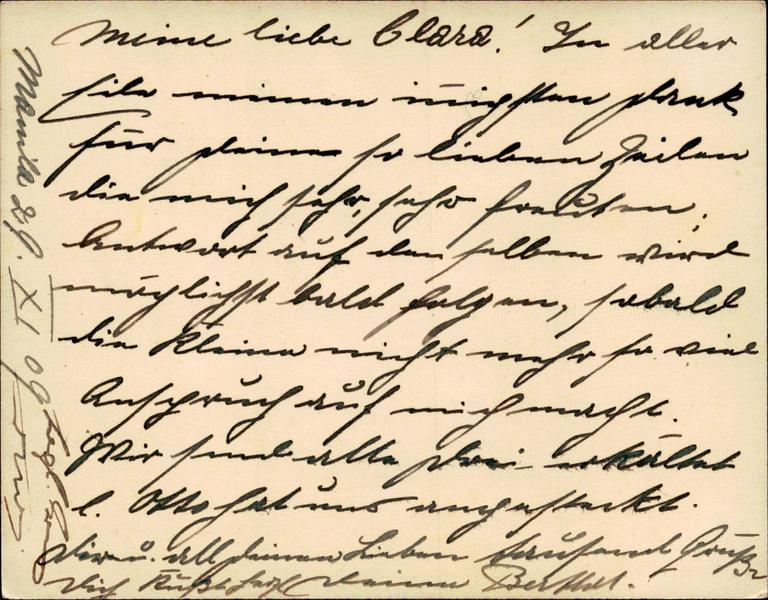 Meine liebe Clara! In aller
Eile meinen innigsten Dank
für Deine so lieben Zeilen
die mich sehr, sehr freuten.
Antwort auf den selben wird
möglichst bald folgen, sobald
die Kleine nicht mehr so viel
Anspruch auf mich macht.
Wir sind alle drei erkältet
l. Otto hat uns angesteckt.
Dir u. all deinen Lieben tausend Grüße
Dich küßt herzl Deine Bertha.
Manila 29. XI 09